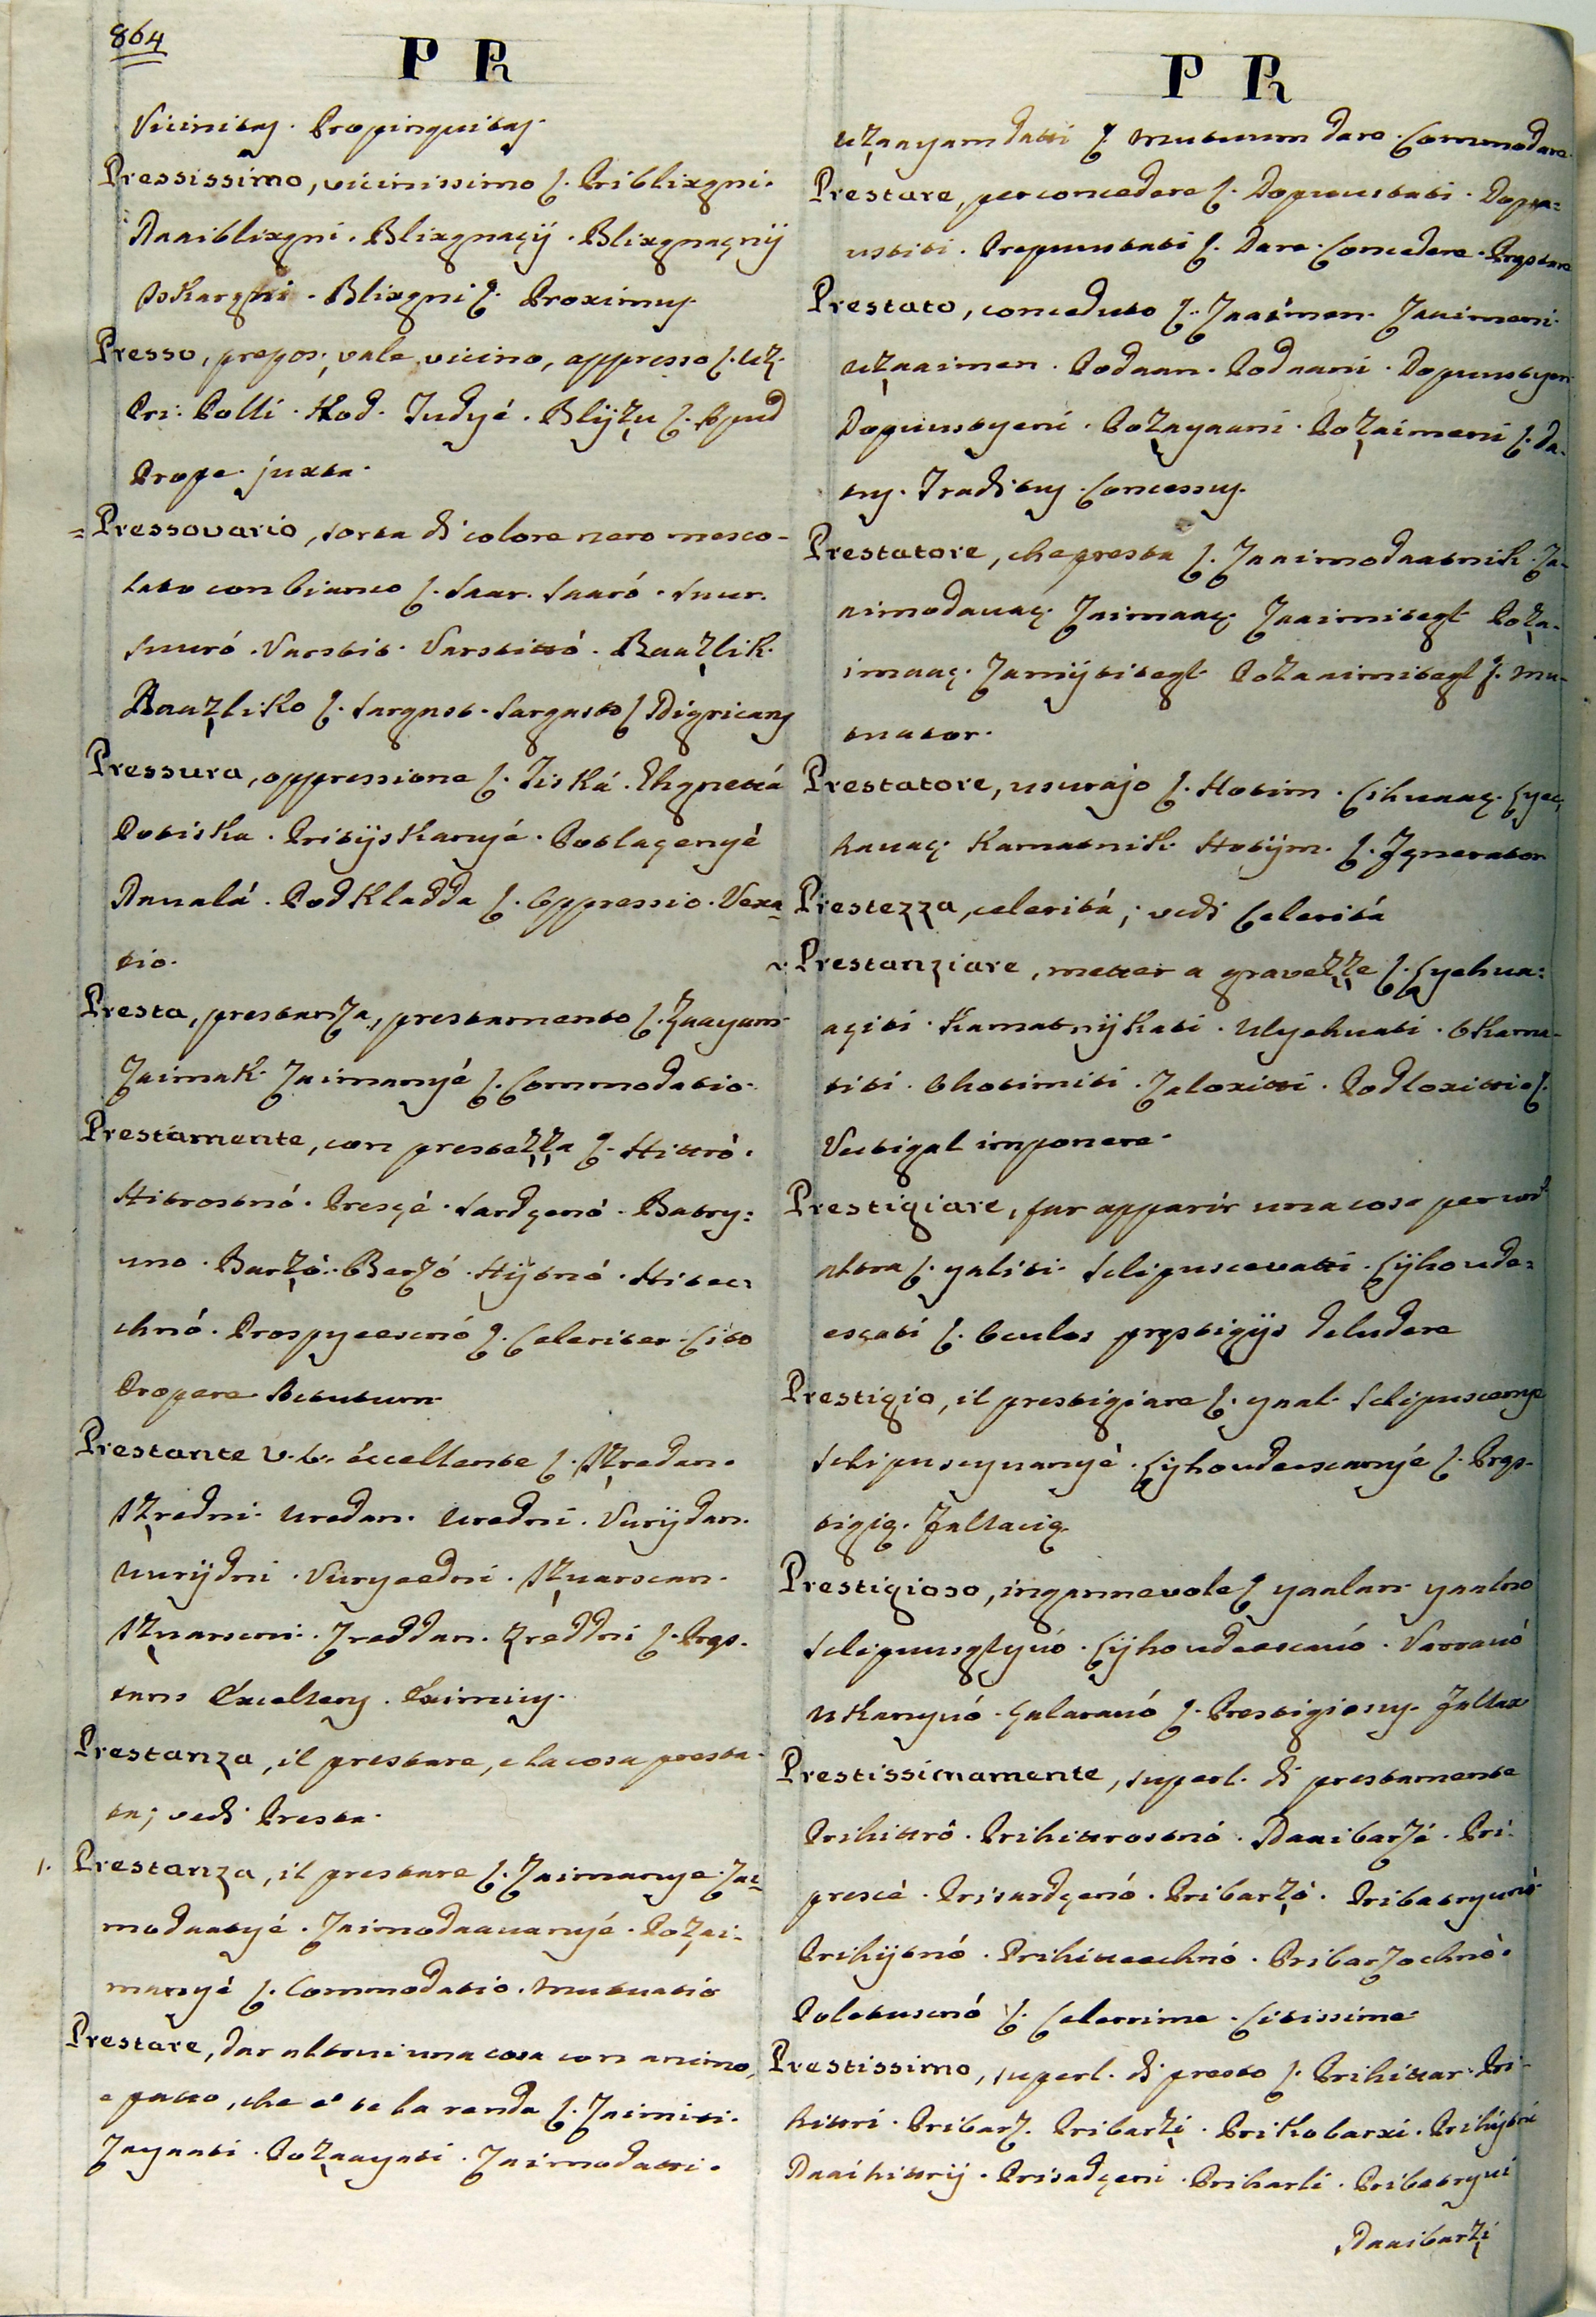 864
P R
Vicinitas. Propinquitas.
Pressissimo, vicinissimo ſ. Priblixgni.
Naaiblixgni. Blixgnaçij. Blixgnaçnij
Blixgni ſ. Proximus.
Presso, prepos: vale, vicino, appresso ſ. Uz.
Pri. Polli. Kod. Tudyé. Blijzu ſ. Apud
Prope. juxta.
Pressovario, sorta di colore nero mesco-
lato con bianco ſ. Saar. Saaró. Suur.
Suuró. Varstit. Varstittó. Baazlik.
Baazliko ſ. Sargast. Sargasto ſ. Nigricans
Pressura, oppressione ſ. Tiská.
Potiska. Pritijskanyé. Potlaçenyé
Navalá. Podkladda ſ. Oppressio. Vexa-
tio.
Presta, prestanza, prestamento ſ. Zaayam
Zaimak. Zaimanyé ſ. Commodatio.
Prestamente, con prestezza ſ. Hittró.
Hitrostnó. Presçé. Sardçenó. Batry:
uno. Barzó. Berzó. Hijtnó. Hitee:
chnó. Prospyeescnó ſ. Celeriter. Cito
Propere. Actutum.
Prestante v. L. éccellente ſ. Izredan.
Izredni. Uredan. Uredni. Vurijdan.
Vurijdni. Vuryeedni. Izuarscan.
Izuarscni. Zreddan. Zreddni ſ. Pręs-
tans Excellens. Eximius.
Prestanza, il prestare, e la cosa presta-
ta; vedi Presta.
1. Prestanza, il prestare ſ. Zaimanye. Zai-
modaatyé. Zaimodaauanyé. Pozai-
manyé ſ. Commodatio. Mutuatio
Prestare, dar altrui una cosa con animo,
e patto, che e' te la renda ſ. Zaimiti.
Zayaati. Pozaayati. Zaimodatti.
P R
uzaayam datti ſ. Mutuum dare. Commodare
Prestare, per concedere ſ. Dopuustati. Dopu:
ustiti. Prepuustati ſ. Dare. Concedere. Pręstare
Prestato, conceduto ſ. Zaaimen. Zaaimeni.
uzaaimen. Podaan. Podaani. Dopuustyen
Dopuustyeni. Pozayaani. Pozaimeni ſ. Da-
tus. Traditus. Concessus.
Prestatore, che presta ſ. Zaaimodaatnik. Za-
aimodauaç. Zaimaaç. Zaaimitegl. Poza-
imaaç. Zamijtitegl. Pozaaimitegl ſ. Mu-
tuator.
Prestatore, usurajo ſ. Hotim.
hauaç. Kamatnik. Hotijm. ſ. Fęnerator
Prestezza, celeritá; vedi Celeritá
Prestanziare, metter a gravezze ſ. Cyehua:
açiti. Kamatnijkati. Ucyehuati. Okama-
titi. Ohotimiti. Zaloxitti. Podloxitti ſ.
Vectigal imponere.
Prestigiare, far apparir una cosa per un'
altra ſ. yaliti. Sclipuscevatti. Cijhoude-
escati ſ. Oculos pręstigijs deludere
Prestigio, il prestigiare ſ. yaal. Sclipuscenye
Sclipuscyvanyé. Cijhoudeescanyé ſ. Pręs-
tigię. Fallacię.
Prestigioso, ingannevole ſ. yaalan. yaalno
Sclipuusglyuó. Cijhoudeescauó. Varrauó
Ukanyuó. Çalarauó ſ. Prestigiosus. Fallax
Prestissimamente, superl. di prestamente
Prihittró. Prihittrostnó. Naaibarzé. Pri-
prescé. Prisardçenó. Pribarzó. Pribatryunó
Prihijtnó. Prihitteechnó. Pribarzochnó.
Poletuscnó ſ. Celerrime. Citissime.
Prestissimo, superl. di presto ſ. Prihittar. Pri-
hittri. Pribarz. Pribarzi. Prikobarxi. Prihijtni
Naaihittrij. Prisadçeni. Priharli. Pribatryui
Naaibarzi